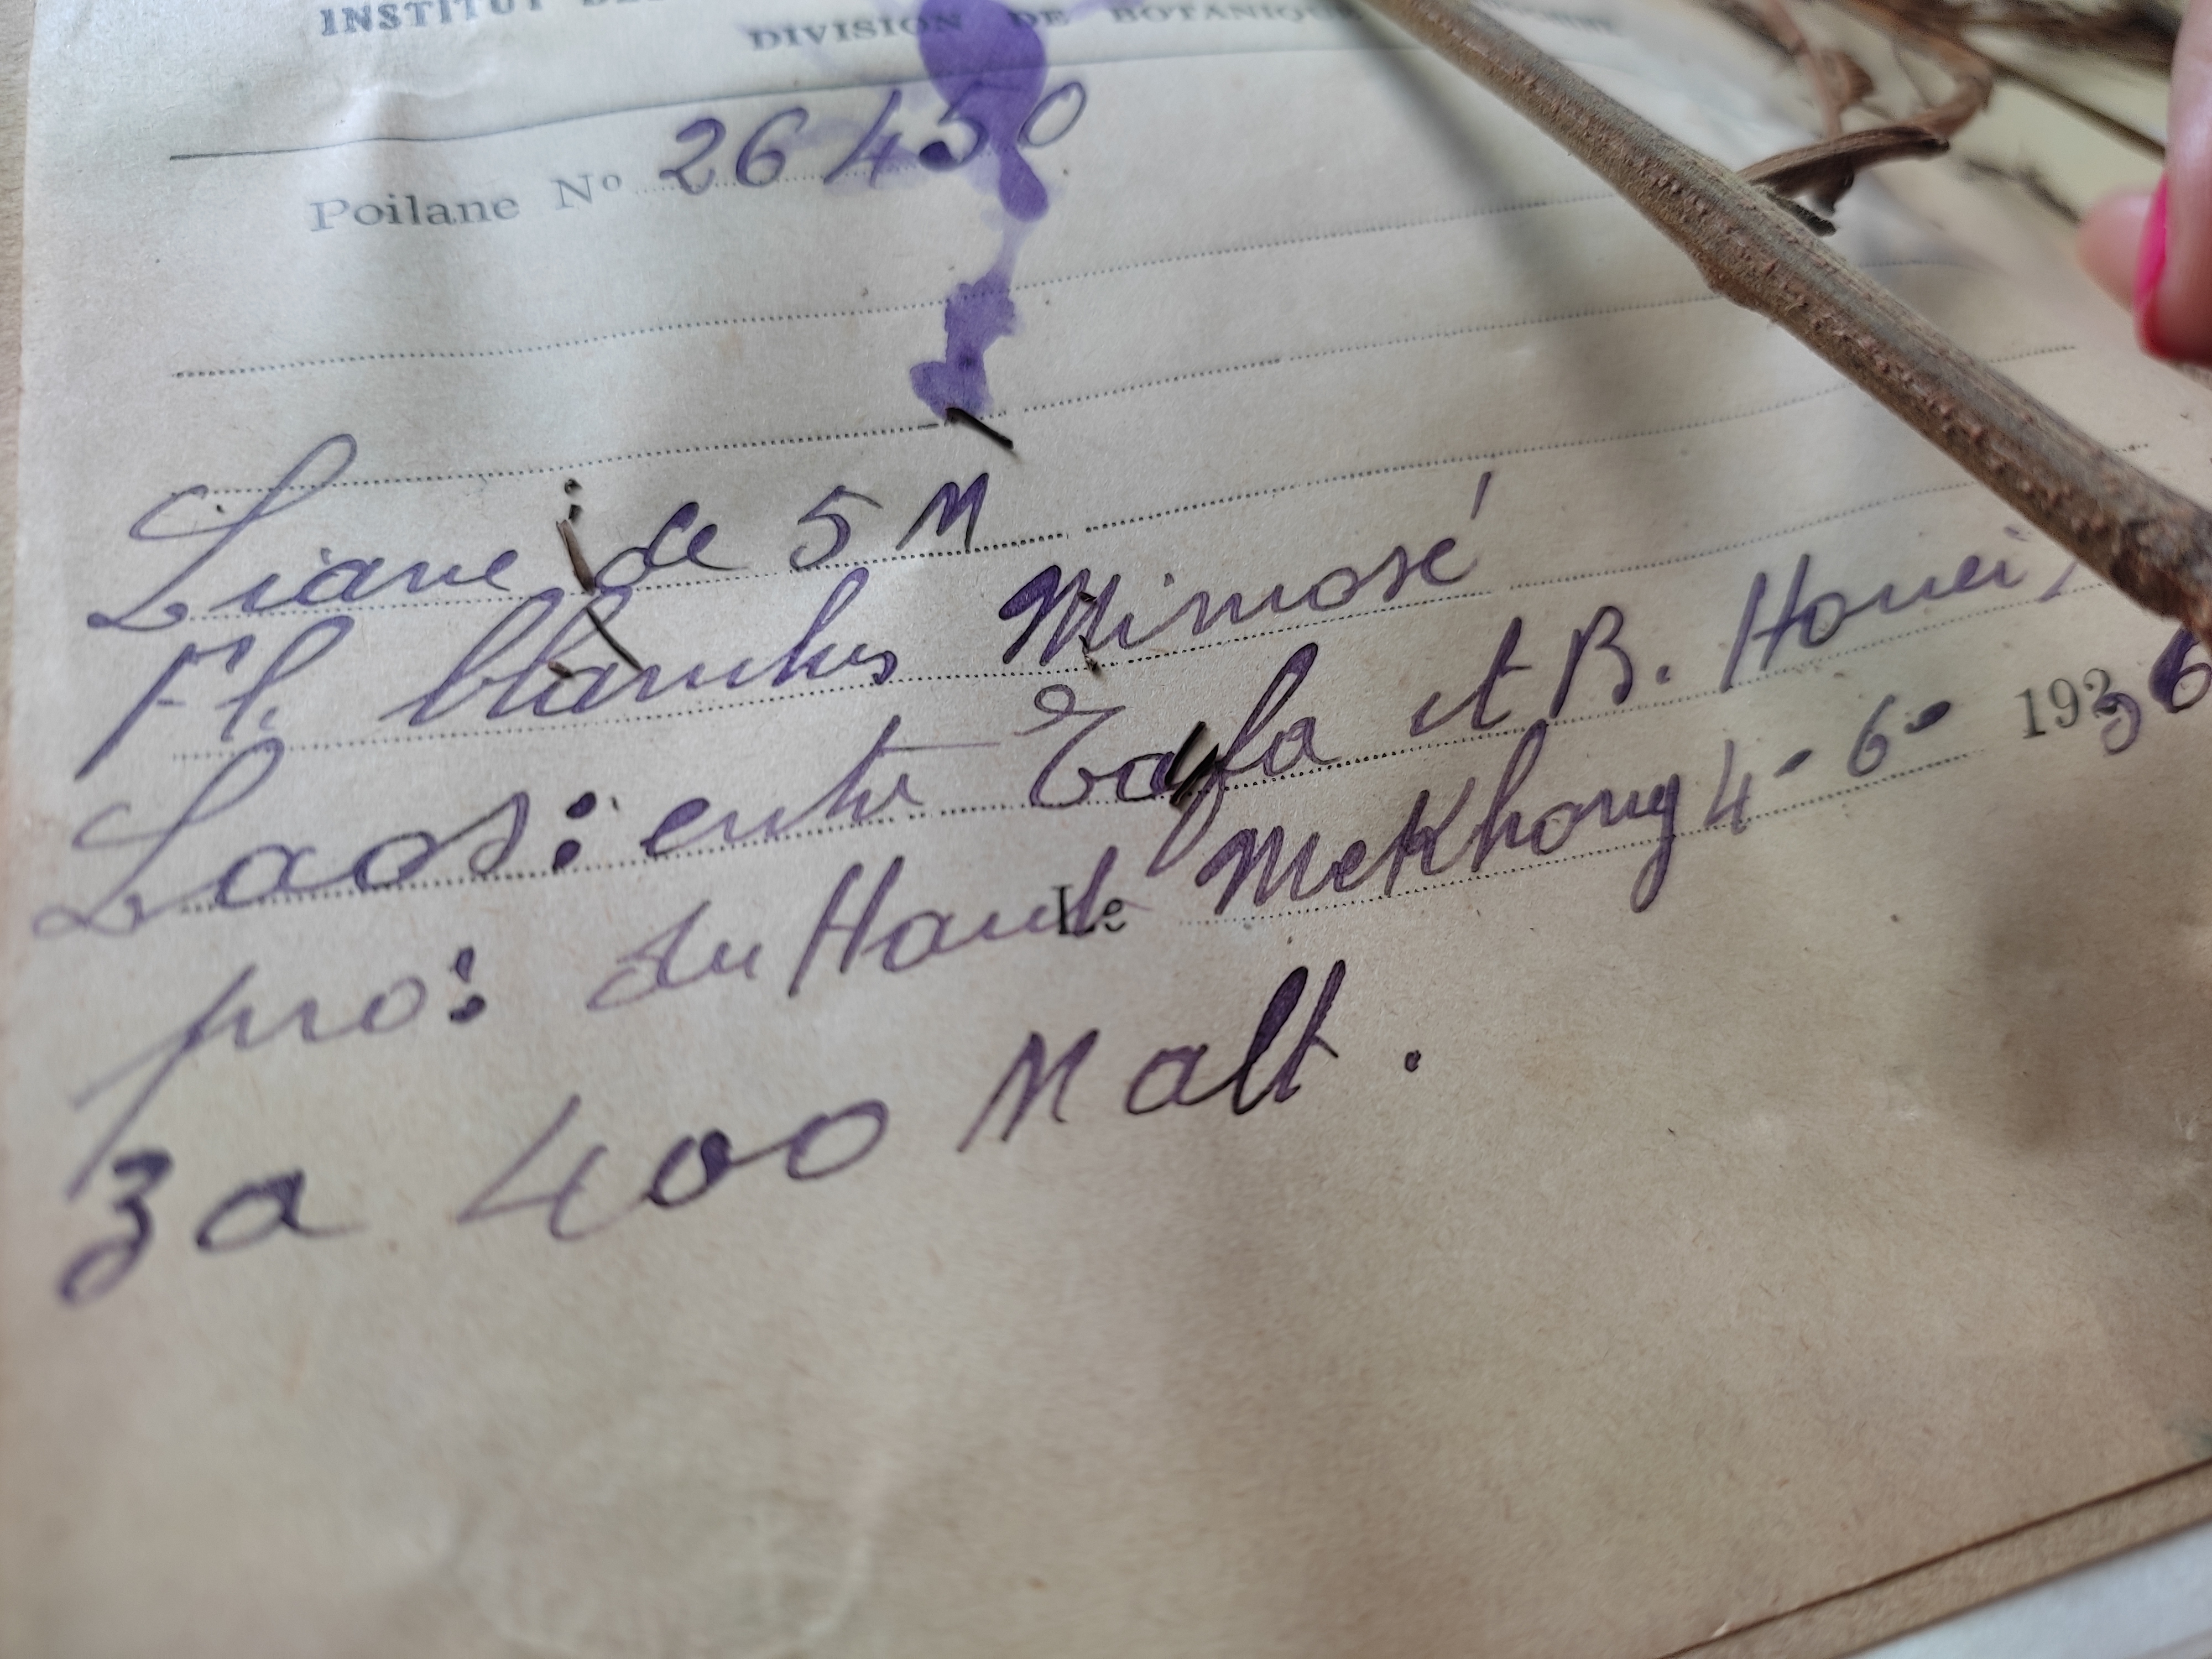 INSTITUT DE
DIVISION DE BOTANIQUE
Poilane Nº 26450
Liane de 5 M
Fl. blanches Mimosé
Laos: entre Tafa et B. Houei
pro: du Haut Mekhong 4 - 6 - 1936
Le
3 a 400 M alt.